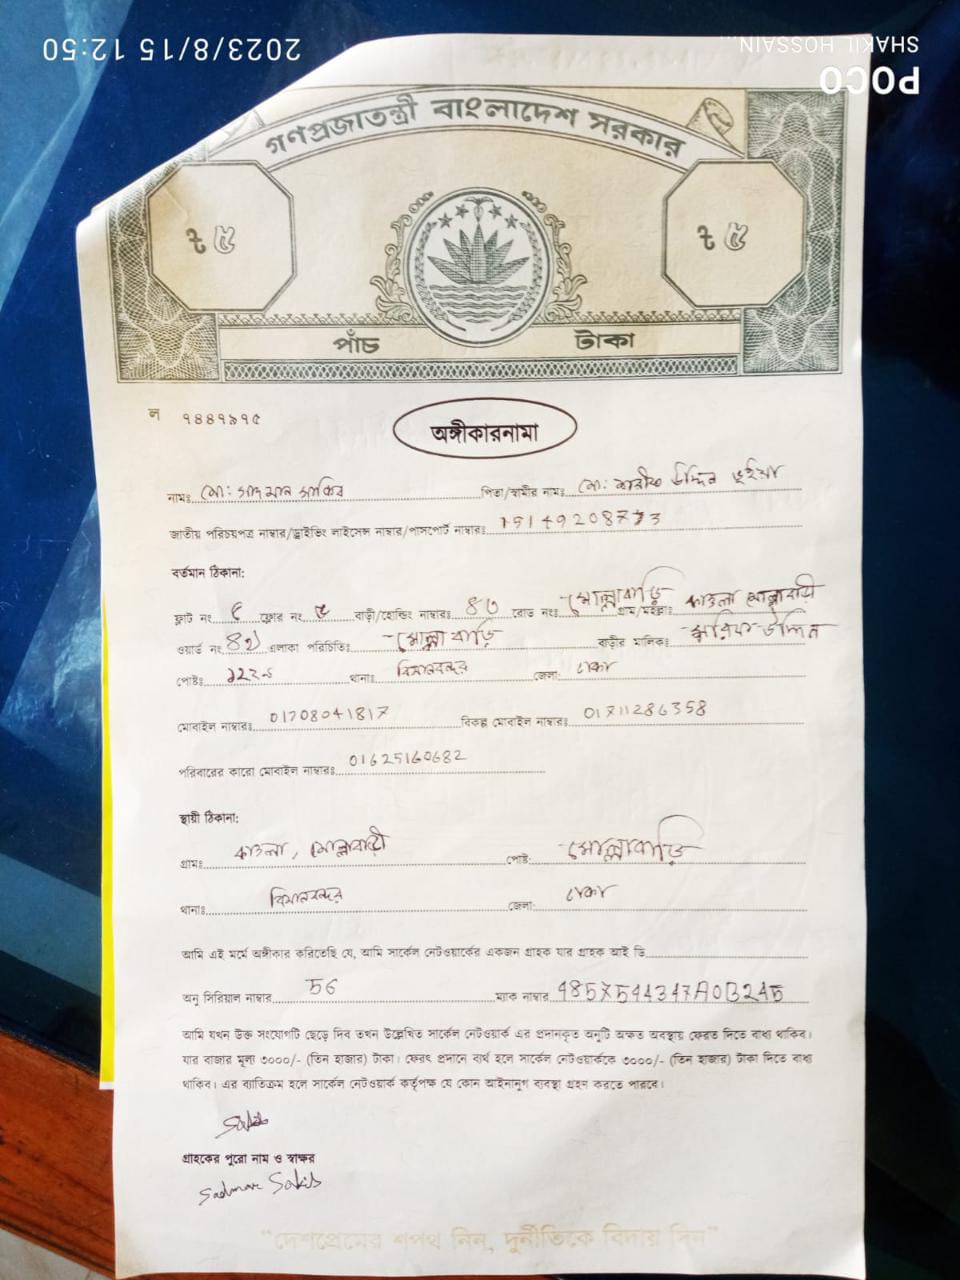 2023/8/15 12:50
SHAKIL HOSSAIN...
POCO
গণপ্রজাতন্ত্রী বাংলাদেশ সরকার
৳ ৫ ৳ ৫
পাঁচ টাকা
ল ৭৪৪৭৯৭৫
অঙ্গীকারনামা
নামঃ মো: সাদমান সাকিব পিতা/স্বামীর নামঃ মো: শরীফ উদ্দিন ভূইয়া
জাতীয় পরিচয়পত্র নাম্বার/ড্রাইভিং লাইসেন্স নাম্বার/পাসপোর্ট নাম্বারঃ
বর্তমান ঠিকানা:
ফ্লাট নং ৫ ফ্লোর নং ৫ বাড়ী/হোল্ডিং নাম্বারঃ ৪৩ রোড নং মোল্লাবাড়ি গ্রাম/মহল্লাঃ কাওলা মোল্লাবাড়ী
ওয়ার্ড নং এলাকা পরিচিতিঃ মোল্লা বাড়ি বাড়ীর মালিকঃ উদ্দিন
পোষ্টঃ ১২২৯ থানাঃ বিমানবন্দর জেলা: ঢাকা
মোবাইল নাম্বারঃ 01708041817 বিকল্প মোবাইল নাম্বারঃ 01711286358
পরিবারের কারো মোবাইল নাম্বারঃ 01625160682
স্থায়ী ঠিকানা:
গ্রামঃ কাওলা, মোল্লাবাড়ী পোষ্ট: মোল্লাবাড়ি
থানাঃ বিমানবন্দর জেলা: ঢাকা
আমি এই মর্মে অঙ্গীকার করিতেছি যে, আমি সার্কেল নেটওয়ার্কের একজন গ্রাহক যার গ্রাহক আই ডি
অনু সিরিয়াল নাম্বার 56 ম্যাক নাম্বার 4857544347A0B245
আমি যখন উক্ত সংযোগটি ছেড়ে দিব তখন উল্লেখিত সার্কেল নেটওয়ার্ক এর প্রদানকৃত অনুটি অক্ষত অবস্থায় ফেরত দিতে বাধ্য থাকিব।
যার বাজার মূল্য ৩০০০/- (তিন হাজার) টাকা। ফেরৎ প্রদানে ব্যর্থ হলে সার্কেল নেটওয়ার্ককে ৩০০০/- (তিন হাজার) টাকা দিতে বাধ্য
থাকিব। এর ব্যতিক্রম হলে সার্কেল নেটওয়ার্ক কর্তৃপক্ষ যে কোন আইনানুগ ব্যবস্থা গ্রহন করতে পারবে।
Sakib
গ্রাহকের পুরো নাম ও স্বাক্ষর
Sadman Sakib
"দেশপ্রেমের শপথ নিন, দুর্নীতিকে বিদায় দিন"